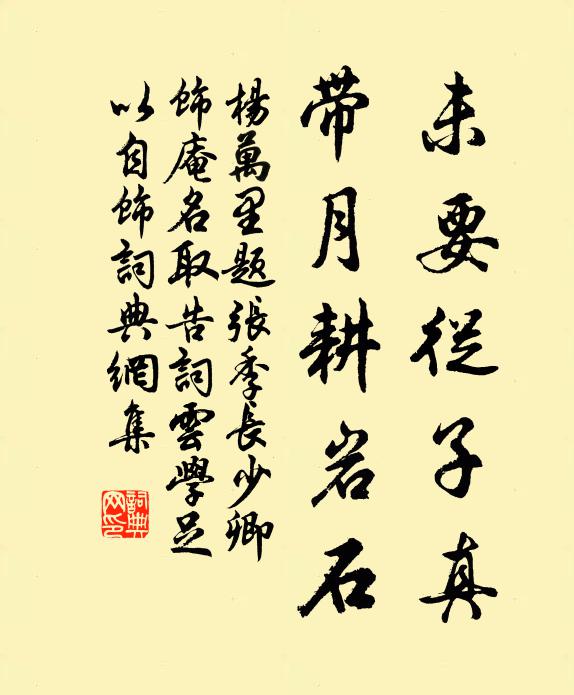 未要從子真
帶月耕岩石
楊萬里題張季長少卿
飾庵名取告詞雲學足
以自飾詞典網集
詞典
网印